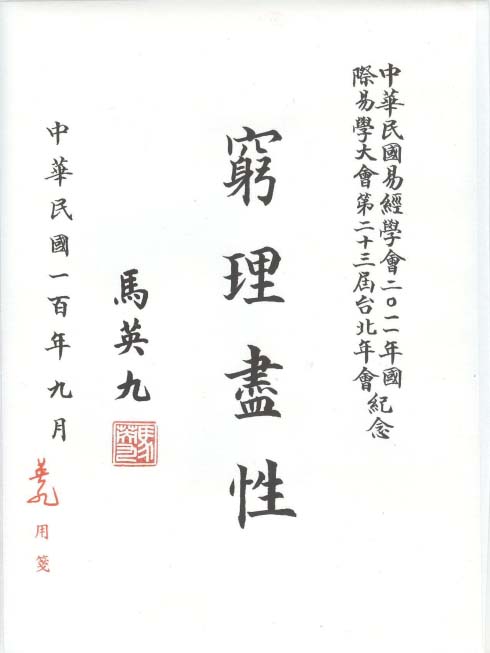 中華民國易經學會二０一一年國
際易學大會第二十三屆台北年會紀念
窮理盡性
馬英九
中華民國一百年九月
用箋